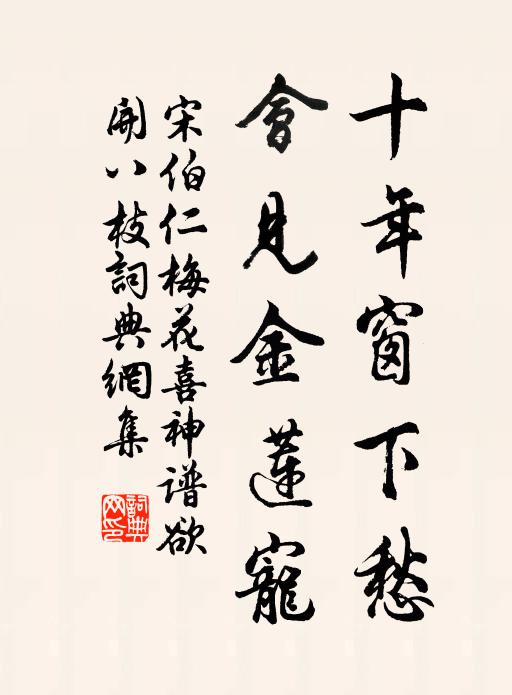 十年窗下愁
會見金蓮寵
宋伯仁梅花喜神譜欲
開八枝詞典網集
詞典网印